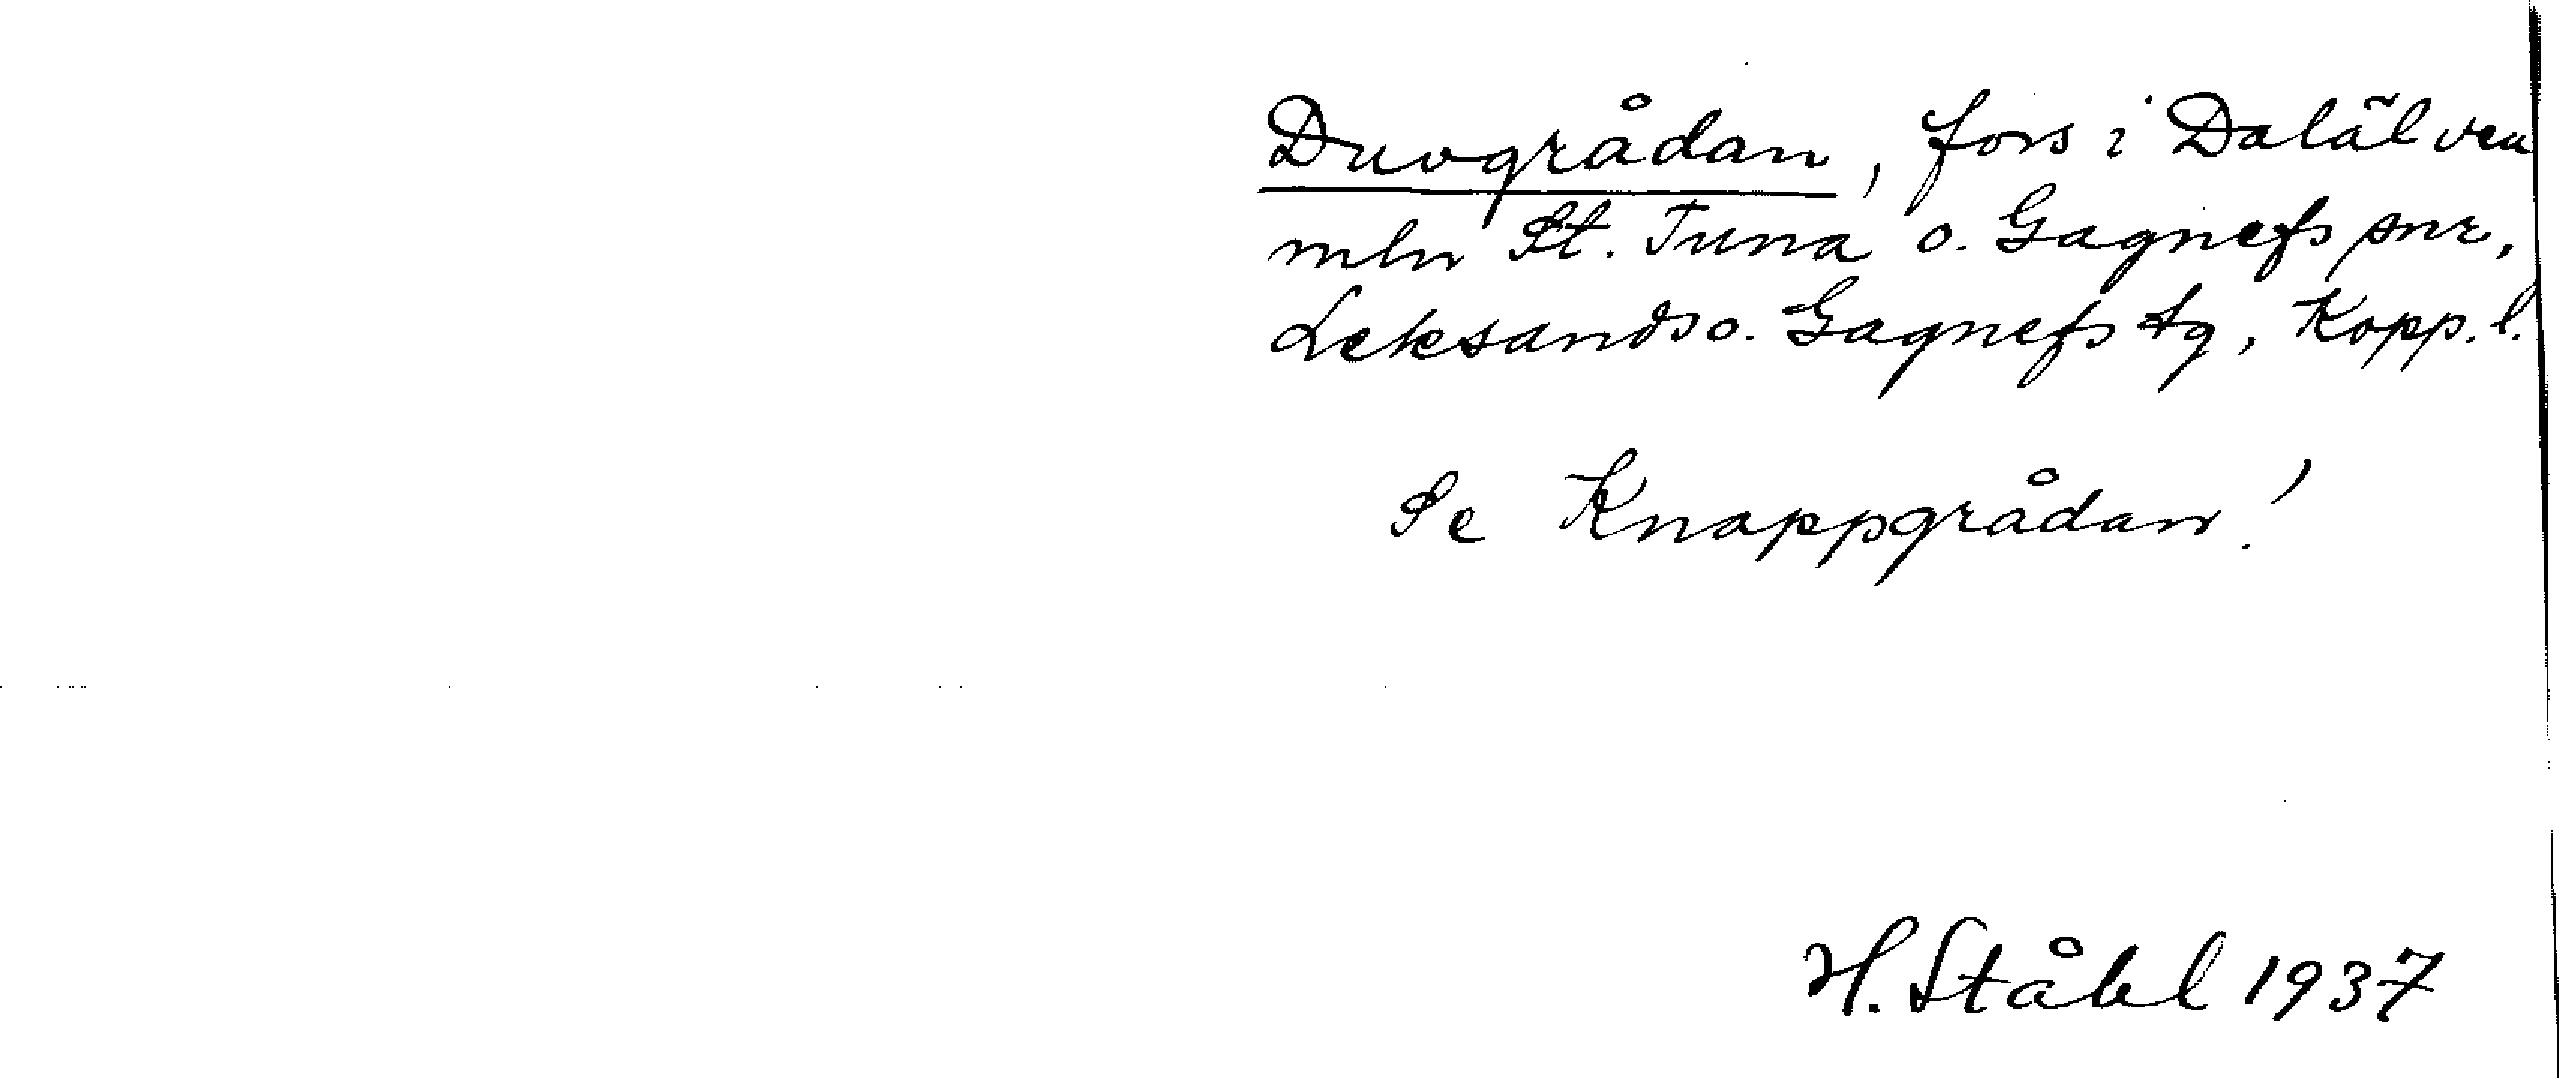 Duvgrådan, fors i Dalälven
mln St. Tuna o. Gagnefs snr,
Leksands o. Gagnefs tg, Kopp. l.
Se Knappgrådan!
H. Ståhl 1937